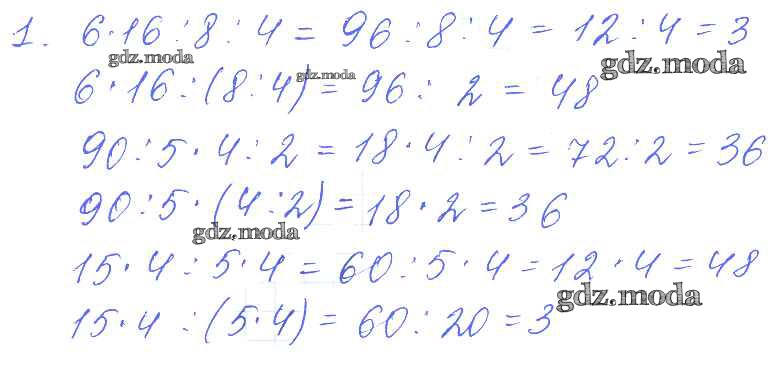 1. 6·16:8:4 = 96:8:4 = 12:4 = 3
gdz.moda
gdz.moda
gdz.moda
6·16:(8:4) = 96: 2 = 48
90:5·4:2 = 18·4:2 = 72:2 = 36
90:5·(4:2) = 18·2 = 36
gdz.moda
15·4:5·4 = 60:5·4 = 12·4 = 48
gdz.moda
15·4:(5·4) = 60:20 = 3